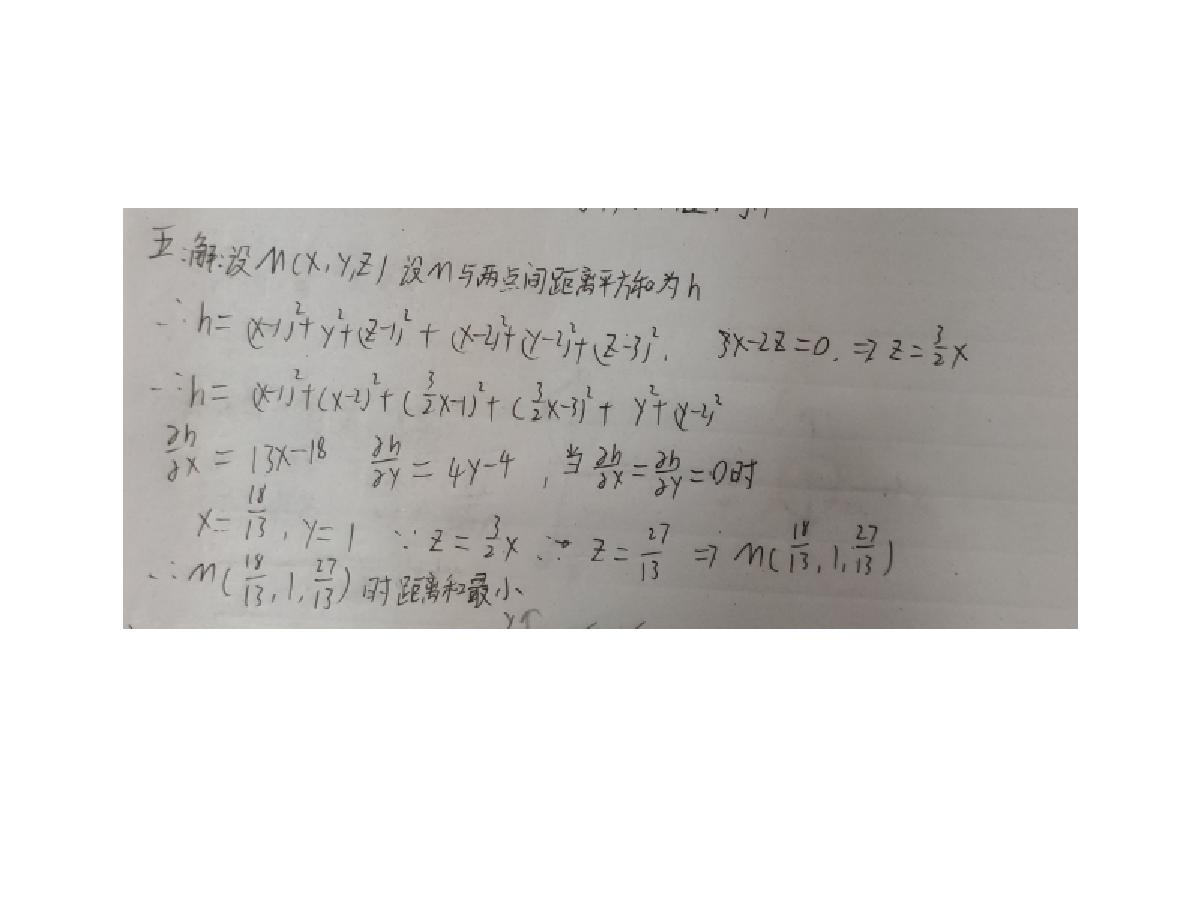 五.解:设M(X,Y,Z) 设M与两点间距离平方和为h
∴h=(x-1)²+y²+(z-1)²+(x-2)²+(y-2)²+(z-3)². 3x-2z=0. ⇒ z=3/2x
∴h=(x-1)²+(x-2)²+(3/2x-1)²+(3/2x-3)²+y²+(y-2)²
∂h/∂x=13x-18 ∂h/∂y=4y-4 ,当∂h/∂x=∂h/∂y=0时
x=18/13,y=1 ∵z=3/2x ∴z=27/13 ⇒ M(18/13,1,27/13)
∴M(18/13,1,27/13)时距离和最小